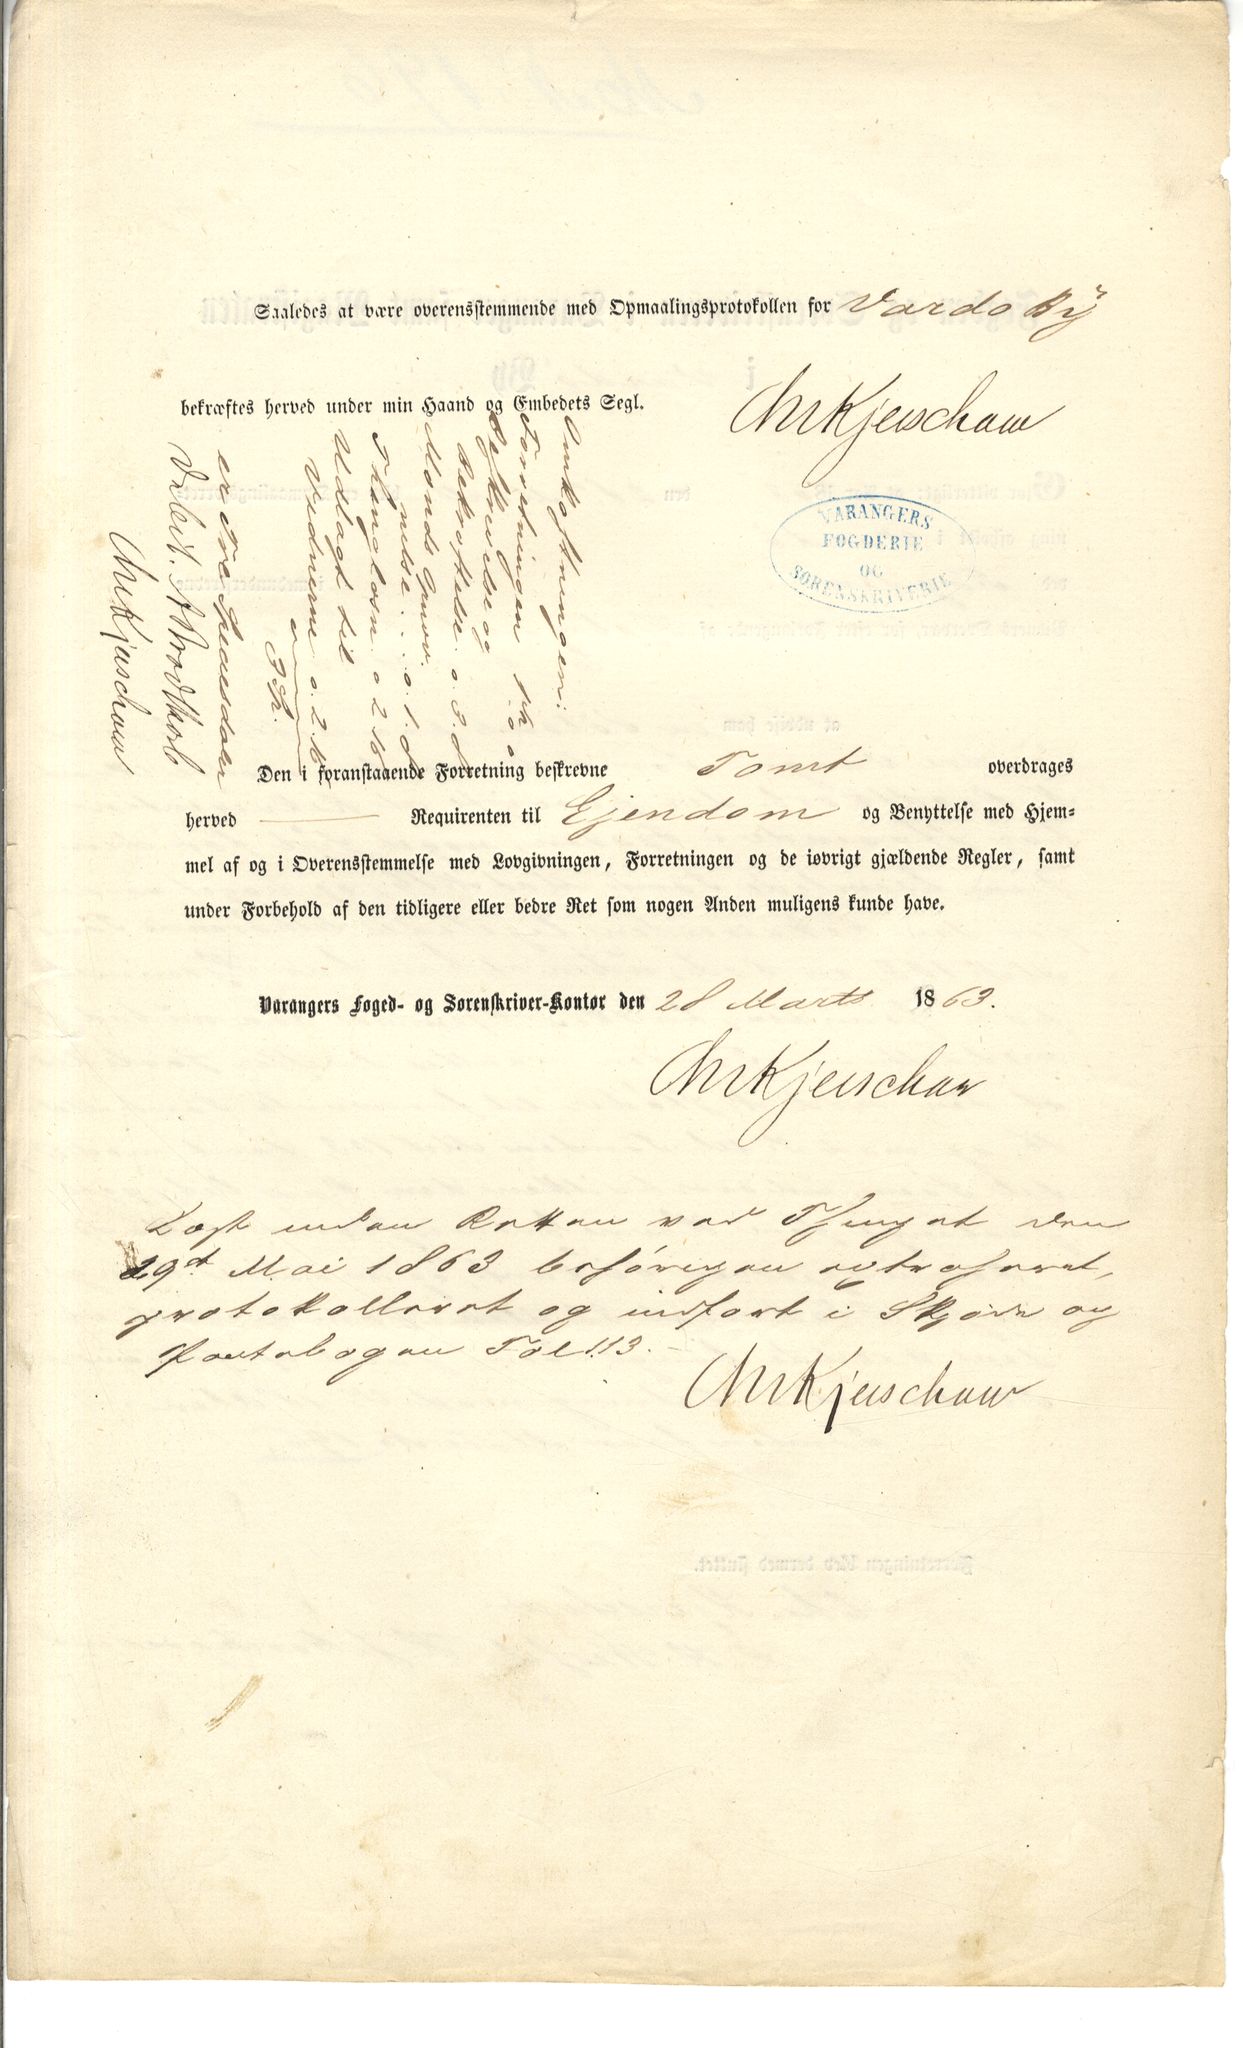 Saaledes at være overensstemmende med Opmaalingsprotokollen for Vardø By
bekræftes herved under min Haand og Embedets Segl.
Chr Kjerschow
VARANGERS
FOGDERIE
OG
SØRENSKRIVERIE
Omkostningen:
Forretningen
og
Bekræftelse
Thinglæsn.
Udlagt til
Vidnerne
er Tre Speciesdaler
Chr Kjerschow
Den i foranstaaende Forretning beskrevne Tomt overdrages
herved Requirenten til Ejendom og Benyttelse med Hjem-
mel af og i Overensstemmelse med Lovgivningen, Forretningen og de iøvrigt gjældende Regler, samt
under Forbehold af den tidligere eller bedre Ret som nogen Anden muligens kunde have.
Varangers Foged- og Sørenskriver-Kontor den 28 Marts 1863.
Chr Kjerschow
Læst inden Retten ved Thinget den
29de Mai 1863
protokolleret og indført i Skjøde og
Pantebogen Fol 113.
Chr Kjerschow
Forretningen blev dermed sluttet.